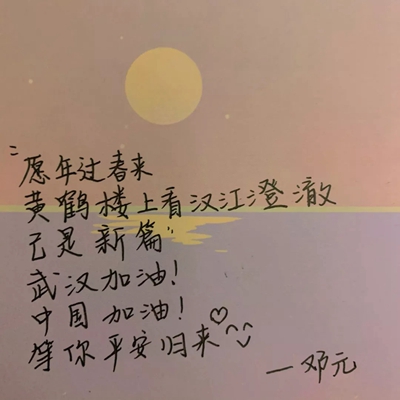 "愿年过春来
黄鹤楼上看汉江澄澈
已是新篇"
武汉加油!
中国加油!
等你平安归来♡^_^
—邓元